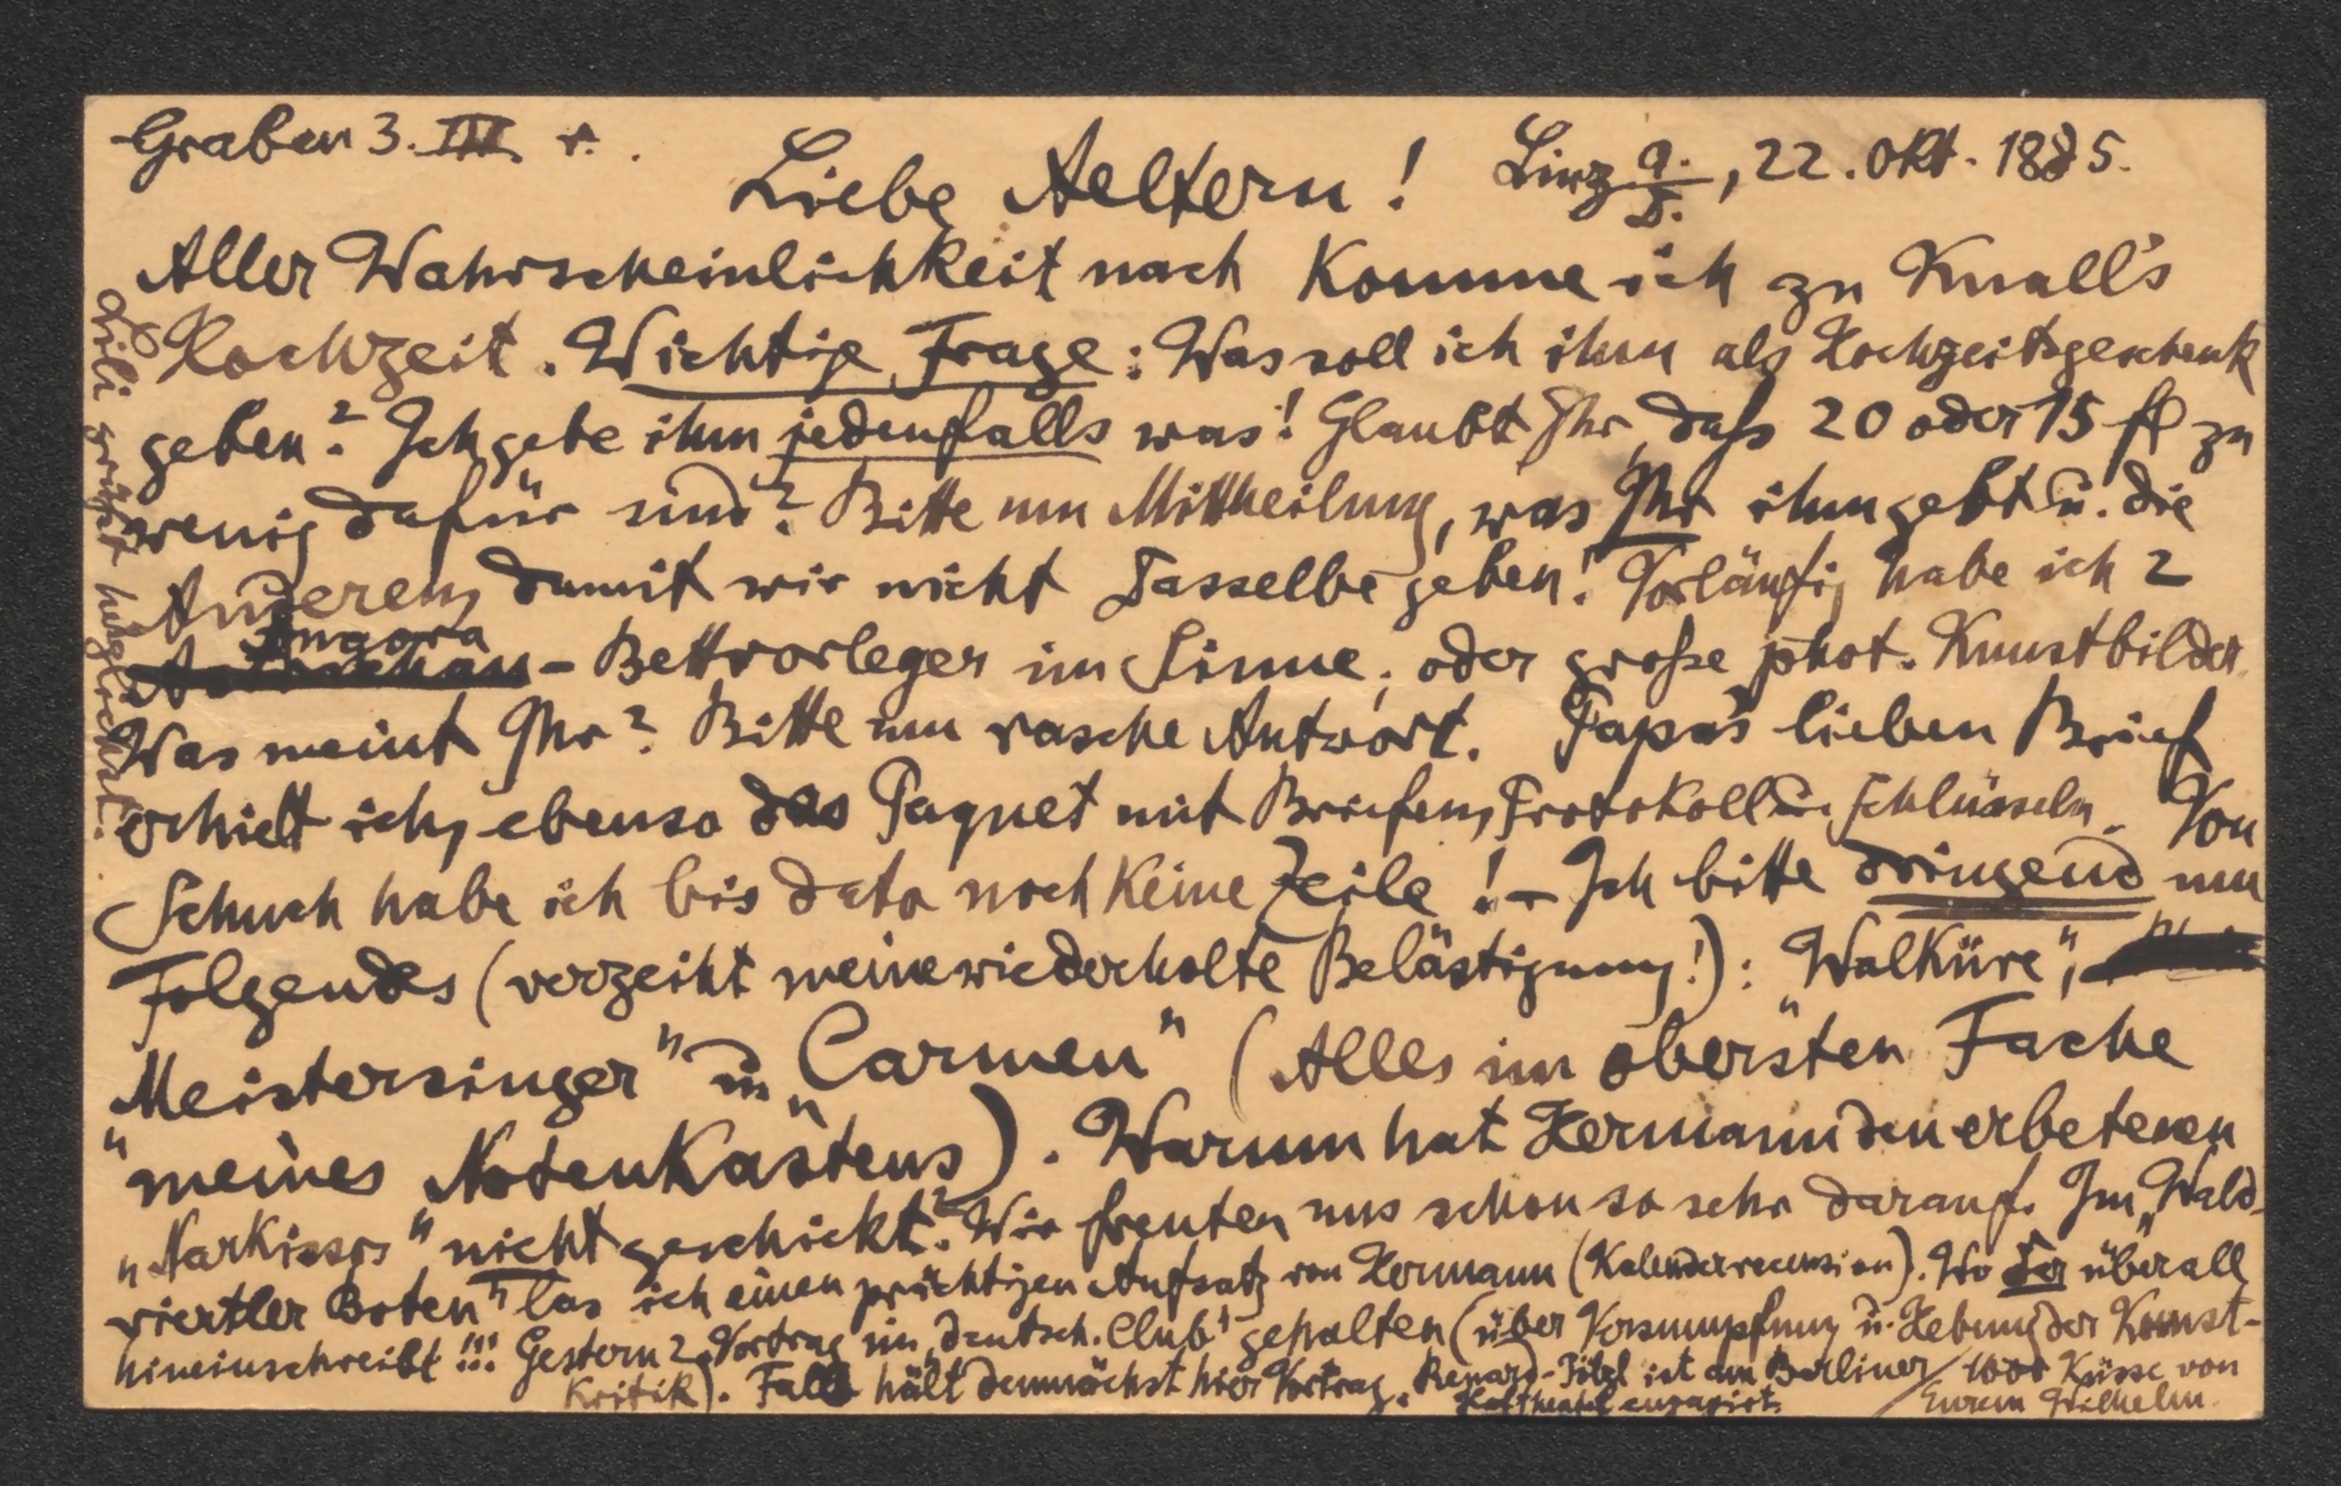 Graben 3. III. r.
Linz a./D., 22. Okt. 1885.
Liebe Aeltern!
Aller Wahrscheinlichkeit nach komme ich zu Knall's
Hochzeit. Wichtige Frage: Was soll ich ihm als Hochzeitsgeschenk
geben? Ich gebe ihm jedenfalls was! Glaubt Ihr, daß 20 oder 15 fl zu
wenig dafür sind? Bitte um Mittheilung, was Ihr ihm gebt u. die
Anderen, damit wir nicht Dasselbe geben! Vorläufig habe ich 2
Angora
- Bettvorleger im Sinne; oder große phot. Kunstbilder.
Was meint Ihr? Bitte um rasche Antwort. Papa's lieben Brief
erhielt ich, ebenso das Paquet mit Briefen, Protokoll u. Schlüsseln. Von
Schuch habe ich bis dato noch keine Zeile! – Ich bitte dringend um
Folgendes (verzeiht meine wiederholte Belästigung!): „Walküre",
„Meistersinger" u. „Carmen" (Alles im obersten Fache
meines Notenkastens). Warum hat Hermann den erbetenen
„Narkissos" nicht geschickt? Wir freuten uns schon so sehr darauf. Im „Wald-
viertler Boten" las ich einen prächtigen Aufsatz von Hermann (Kalenderrecension). Wo der überall
hineinschreibt!!! Gestern 2. Vortrag im „deutsch. Club" gehalten (über Versumpfung u. Hebung der Kunst-
kritik). Falb hält demnächst hier Vortrag. Renard-Pölzl ist am Berliner
Hoftheater engagirt.
1000 Küsse von
Eurem Wilhelm.
Lili grüßt herzlichst.